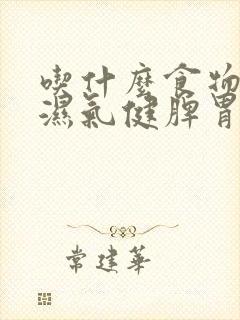 喫什麼食物
濕氣健脾胃
常建華